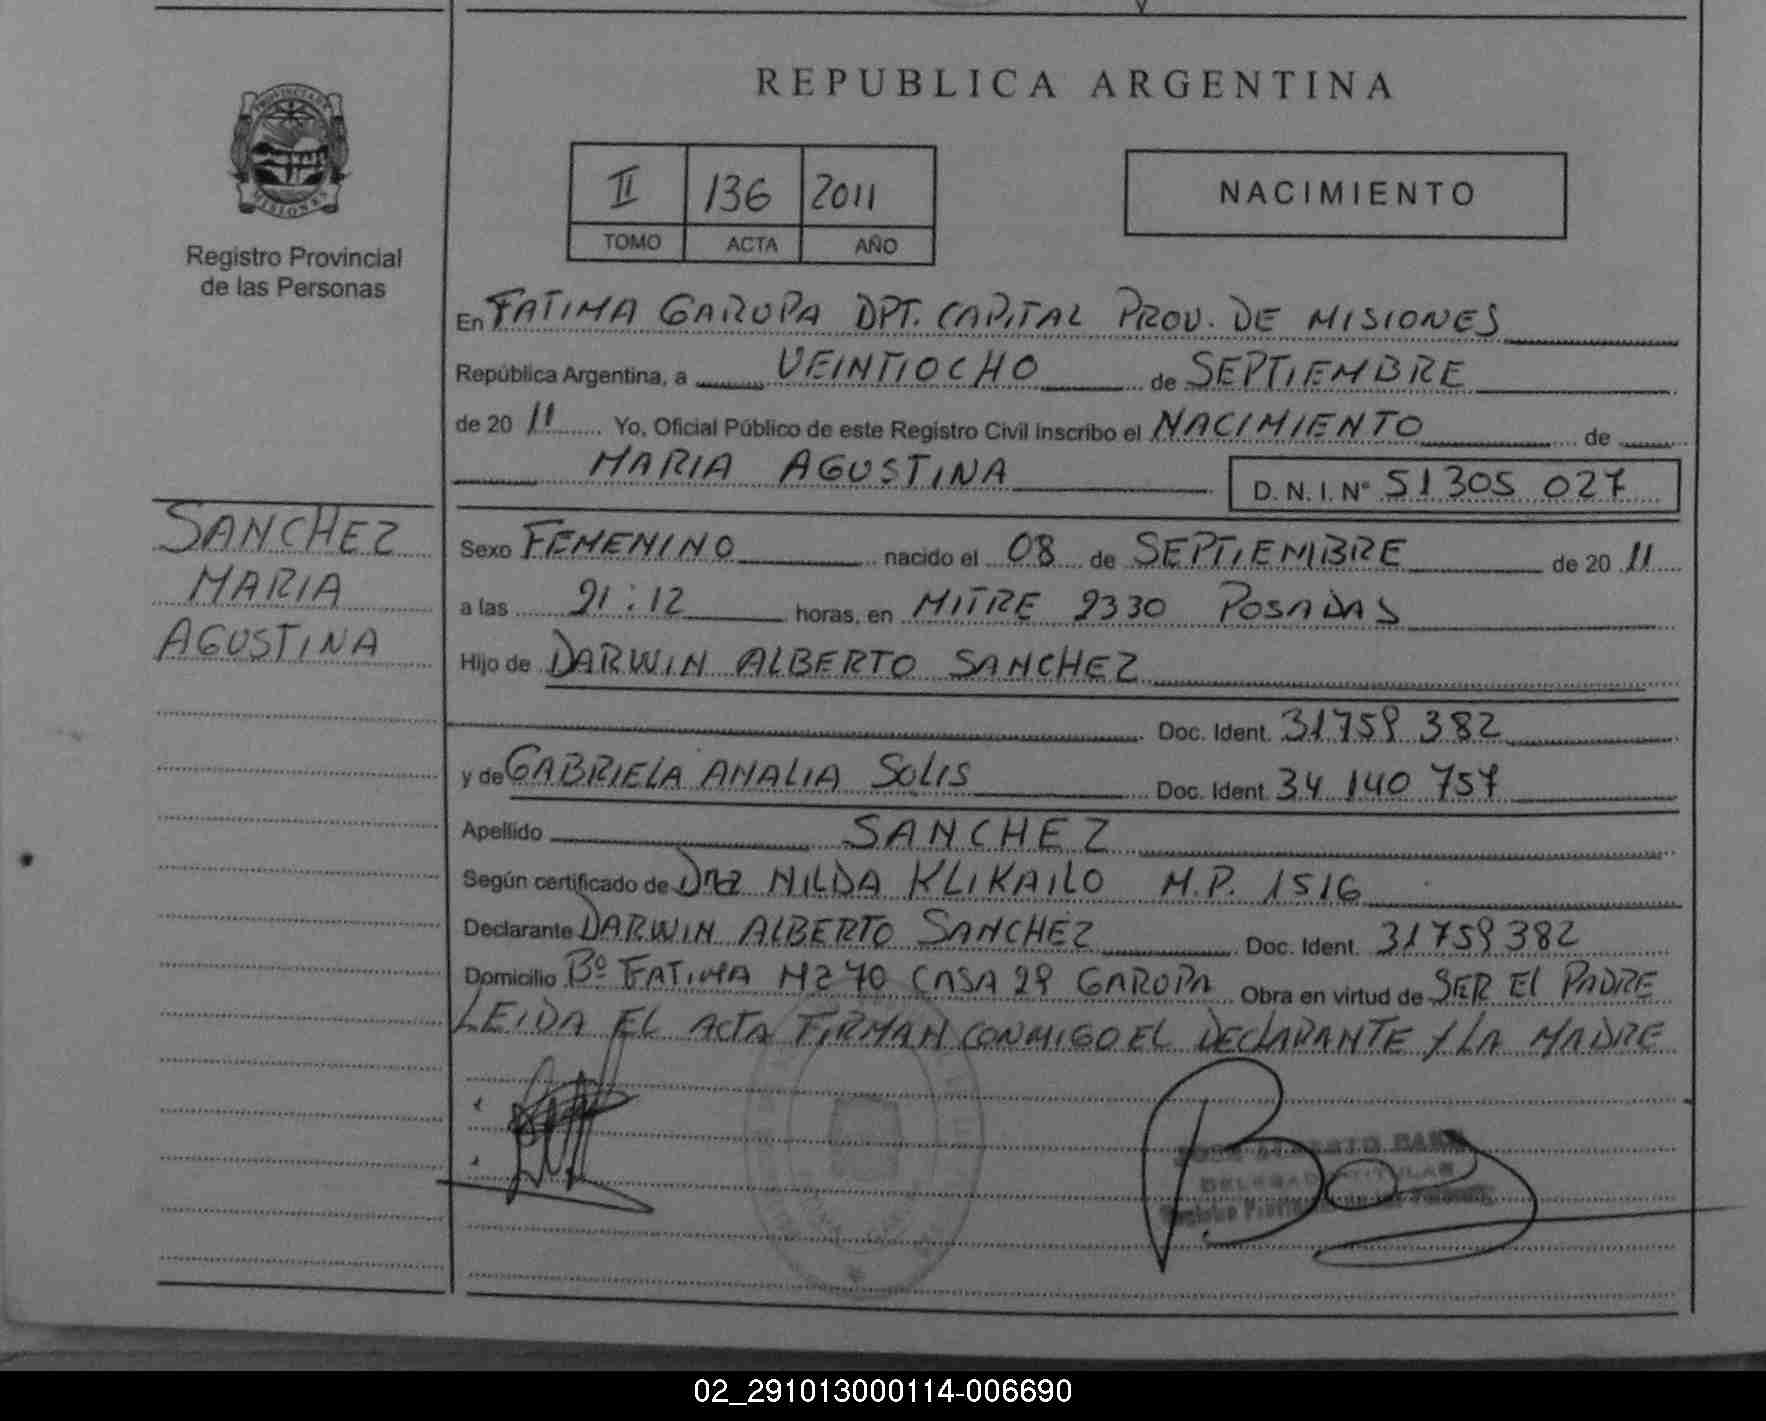 REPUBLICA ARGENTINA
PROVINCIA DE MISIONES
Registro Provincial
de las Personas
II 136 2011
TOMO ACTA AÑO
NACIMIENTO
En FATIMA GARUPA DPT. CAPITAL PROV. DE MISIONES
República Argentina, a VEINTIOCHO de SEPTIEMBRE
de 20 11 Yo, Oficial Público de este Registro Civil inscribo el NACIMIENTO de
MARIA AGUSTINA D.N.I. Nº 51305 027
SANCHEZ
MARIA
AGUSTINA
Sexo FEMENINO nacido el 08 de SEPTIEMBRE de 20 11
a las 21:12 horas, en MITRE 2330 POSADAS
Hijo de DARWIN ALBERTO SANCHEZ
Doc. Ident. 31759 382
y de GABRIELA ANALIA SOLIS Doc. Ident. 34 140 757
Apellido SANCHEZ
Según certificado de Dra NILDA KLIKAILO M.P. 1516
Declarante DARWIN ALBERTO SANCHEZ Doc. Ident. 31759382
Domicilio Bº FATIMA MZ 70 CASA 29 GARUPA Obra en virtud de SER El PADRE
LEIDA EL ACTA FIRMAN CONMIGO EL DECLARANTE Y LA MADRE
DELEGADO TITULAR
02_291013000114-006690